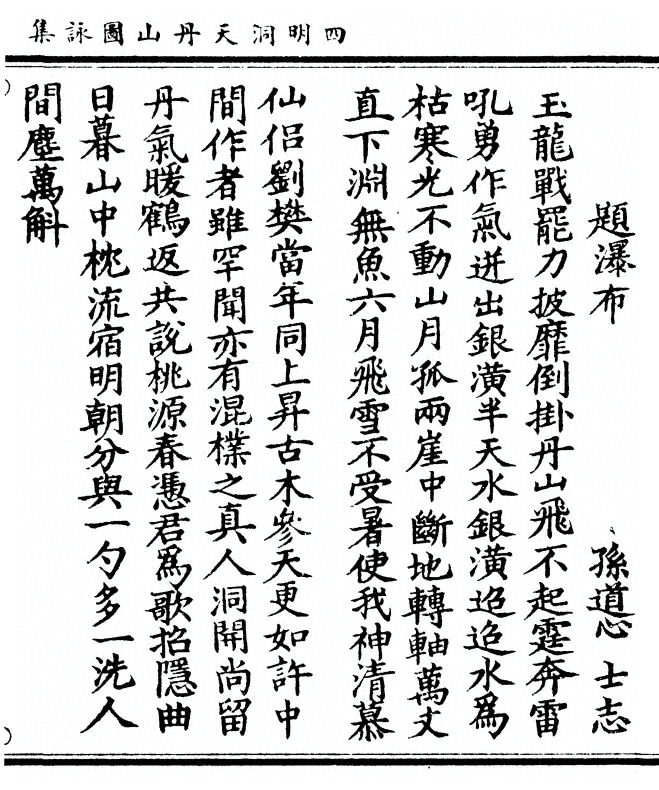 四明洞天丹山圖詠集
題瀑布 孫道心 士志
玉龍戰罷力披靡倒掛丹山飛不起霆奔雷
吼勇作氣迸出銀潢半天水銀潢迢迢水爲
枯寒光不動山月孤兩崖中斷地轉軸萬丈
直下淵無魚六月飛雪不受暑使我神清慕
仙侶劉樊當年同上昇古木參天更如許中
間作者雖罕聞亦有混樸之真人洞開尚留
丹氣暖鶴返共說桃源春憑君爲歌招隱曲
日暮山中枕流宿明朝分與一勺多一洗人
間塵萬斛